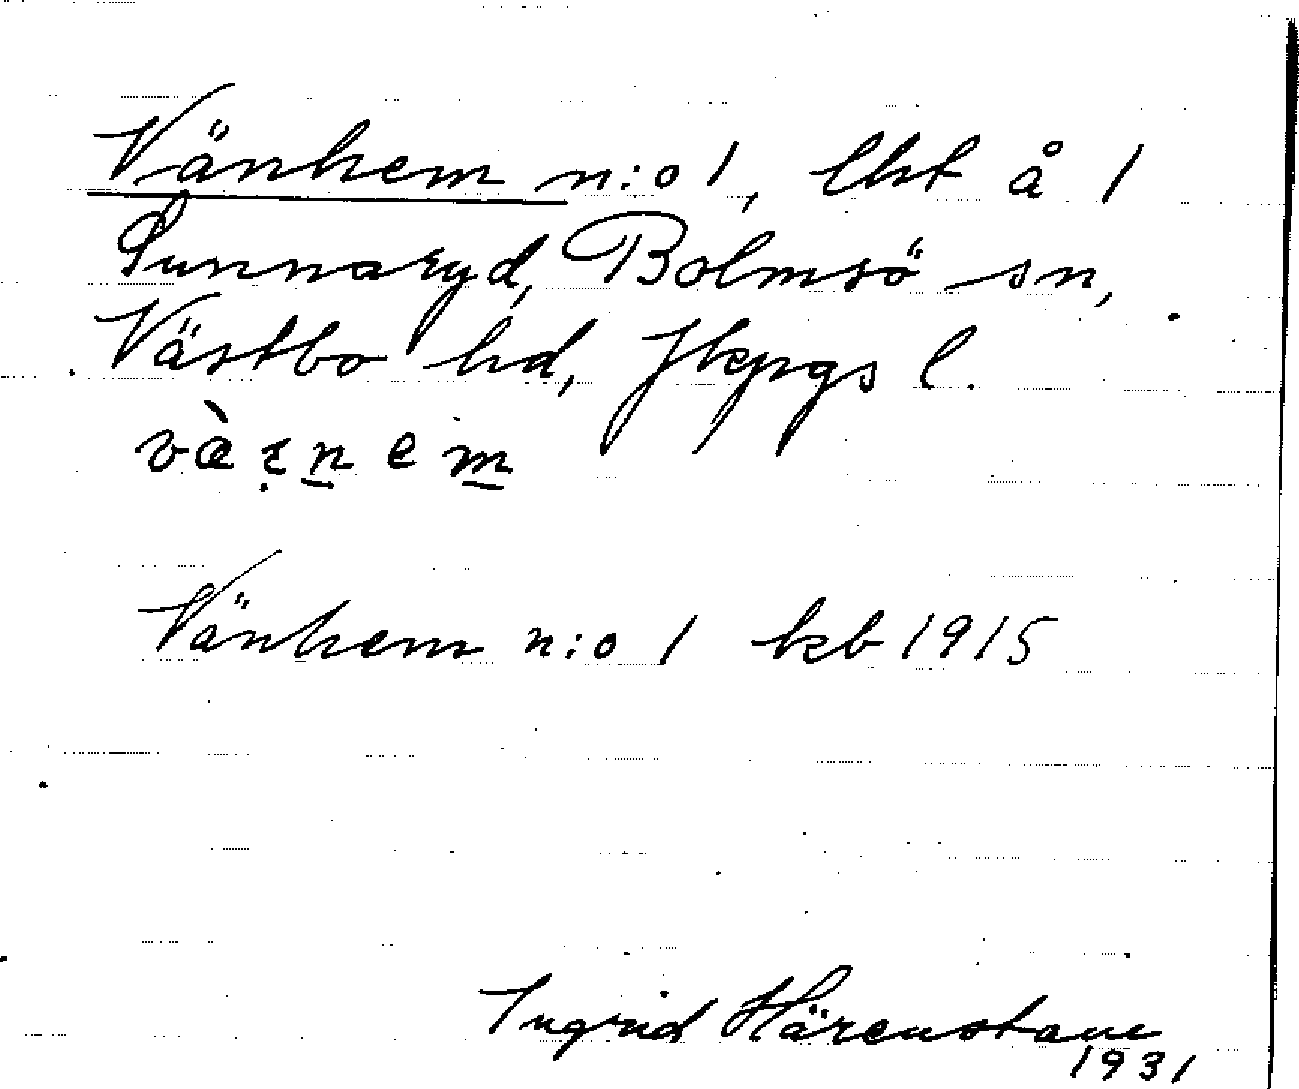 Vänhem n:o 1, lht å 1
Sunnaryd, Bolmsö sn,
Västbo hd, Jkpgs l.
Vänhem n:o 1 kb 1915
Ingrid Härenstam
1931